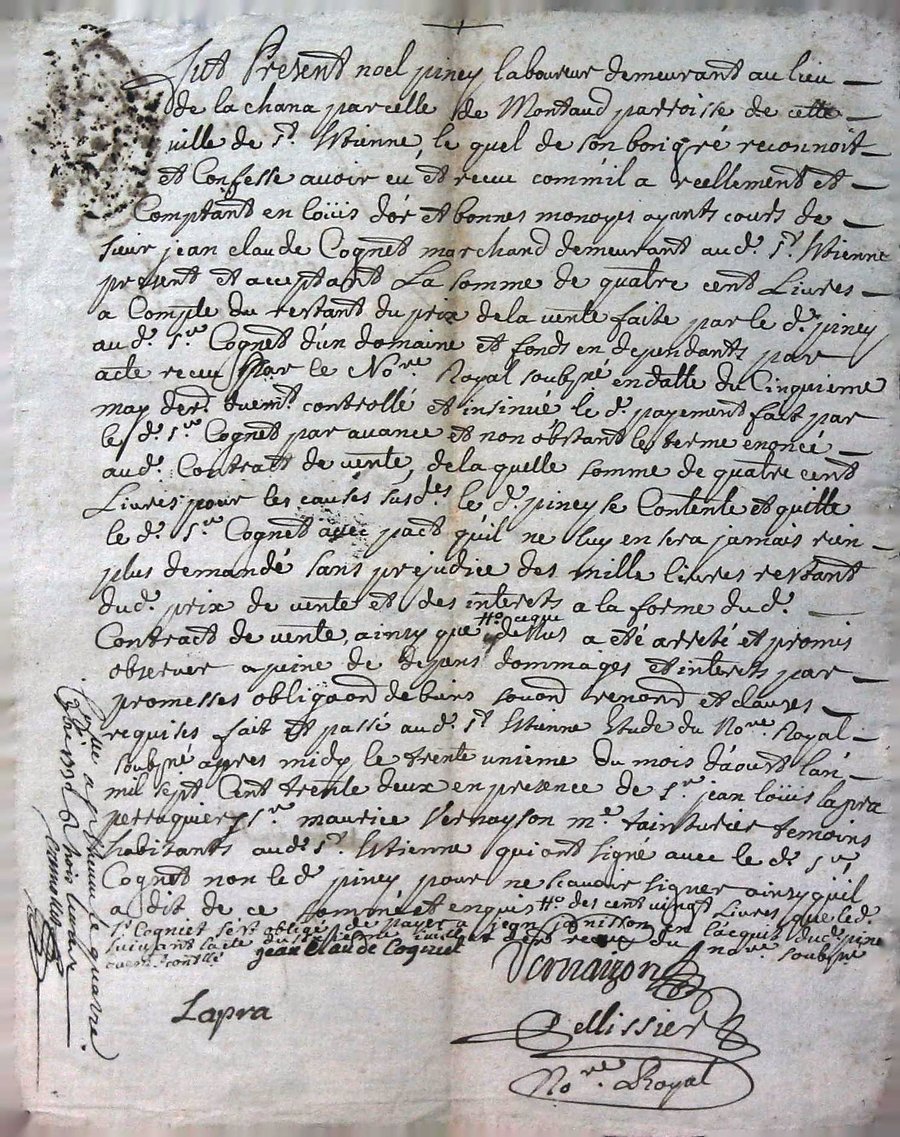 fut Present noel piney laboureur demeurant au lieu
de la chana parcelle de Montaud parroisse de cette
ville de St. Etienne, le quel de son bon gré reconnoit
et Confesse avoir eu et receu comm'il a reellement et
Comptant en loüis d'or et bonnes monoyes ayants cours de
sieur jean claude Cognet marchand demeurant aud. St. Etienne
present et acceptant La somme de quatre cent Livres
a Compte du restant du prix de la vente faite par le d. piney
aud. Sr. Cognet d'un domaine et fonds en dependants par
acte receu par le Nore Royal soubsné en datte du Cinquieme
may der. duemt. controllé et insinué le d. payement fait par
le d. Sr. Cognet par avance et non obstant le terme enoncé
aud. Contract de vente, de la quelle somme de quatre cent
Livres pour les causes susdes le d. piney se Contente et quitte
le d. Sr. Cognet avec pact qu'il ne luy en sera jamais rien
plus demandé sans prejudice des mille livres restant
dud. prix de vente et des interets a la forme dud.
Contract de vente, ainsy que dessus a eté arreté et promis
observer a peine de depens dommages et interets par
promesses obligaond de biens souond renond et clauses
requises fait et passé aud. St. Etienne Etude du Nore Royal
soubsné apres midy le trente unieme du mois d'aoust l'an
mil sept Cent trente deux en presence de Sr. jean loüis lapra
perruquier, Sr. maurice Vernayson me. tainturier temoins
habitants aud. St. Etienne qui ont signé avec le d. Sr.
Cognet non le d. piney pour ne scavoir signer ainsy qu'il
a dit de ce sommé et enquis des cent vingt Livres que le d.
Sr Cogniet s'est obligé de payer a jean en l'acquit dud. piney
suivant l'acte du receu du nore. soubsné
jean Claude Cogniet
Vernaizon
Lapra
Pellissier
Nore Royal